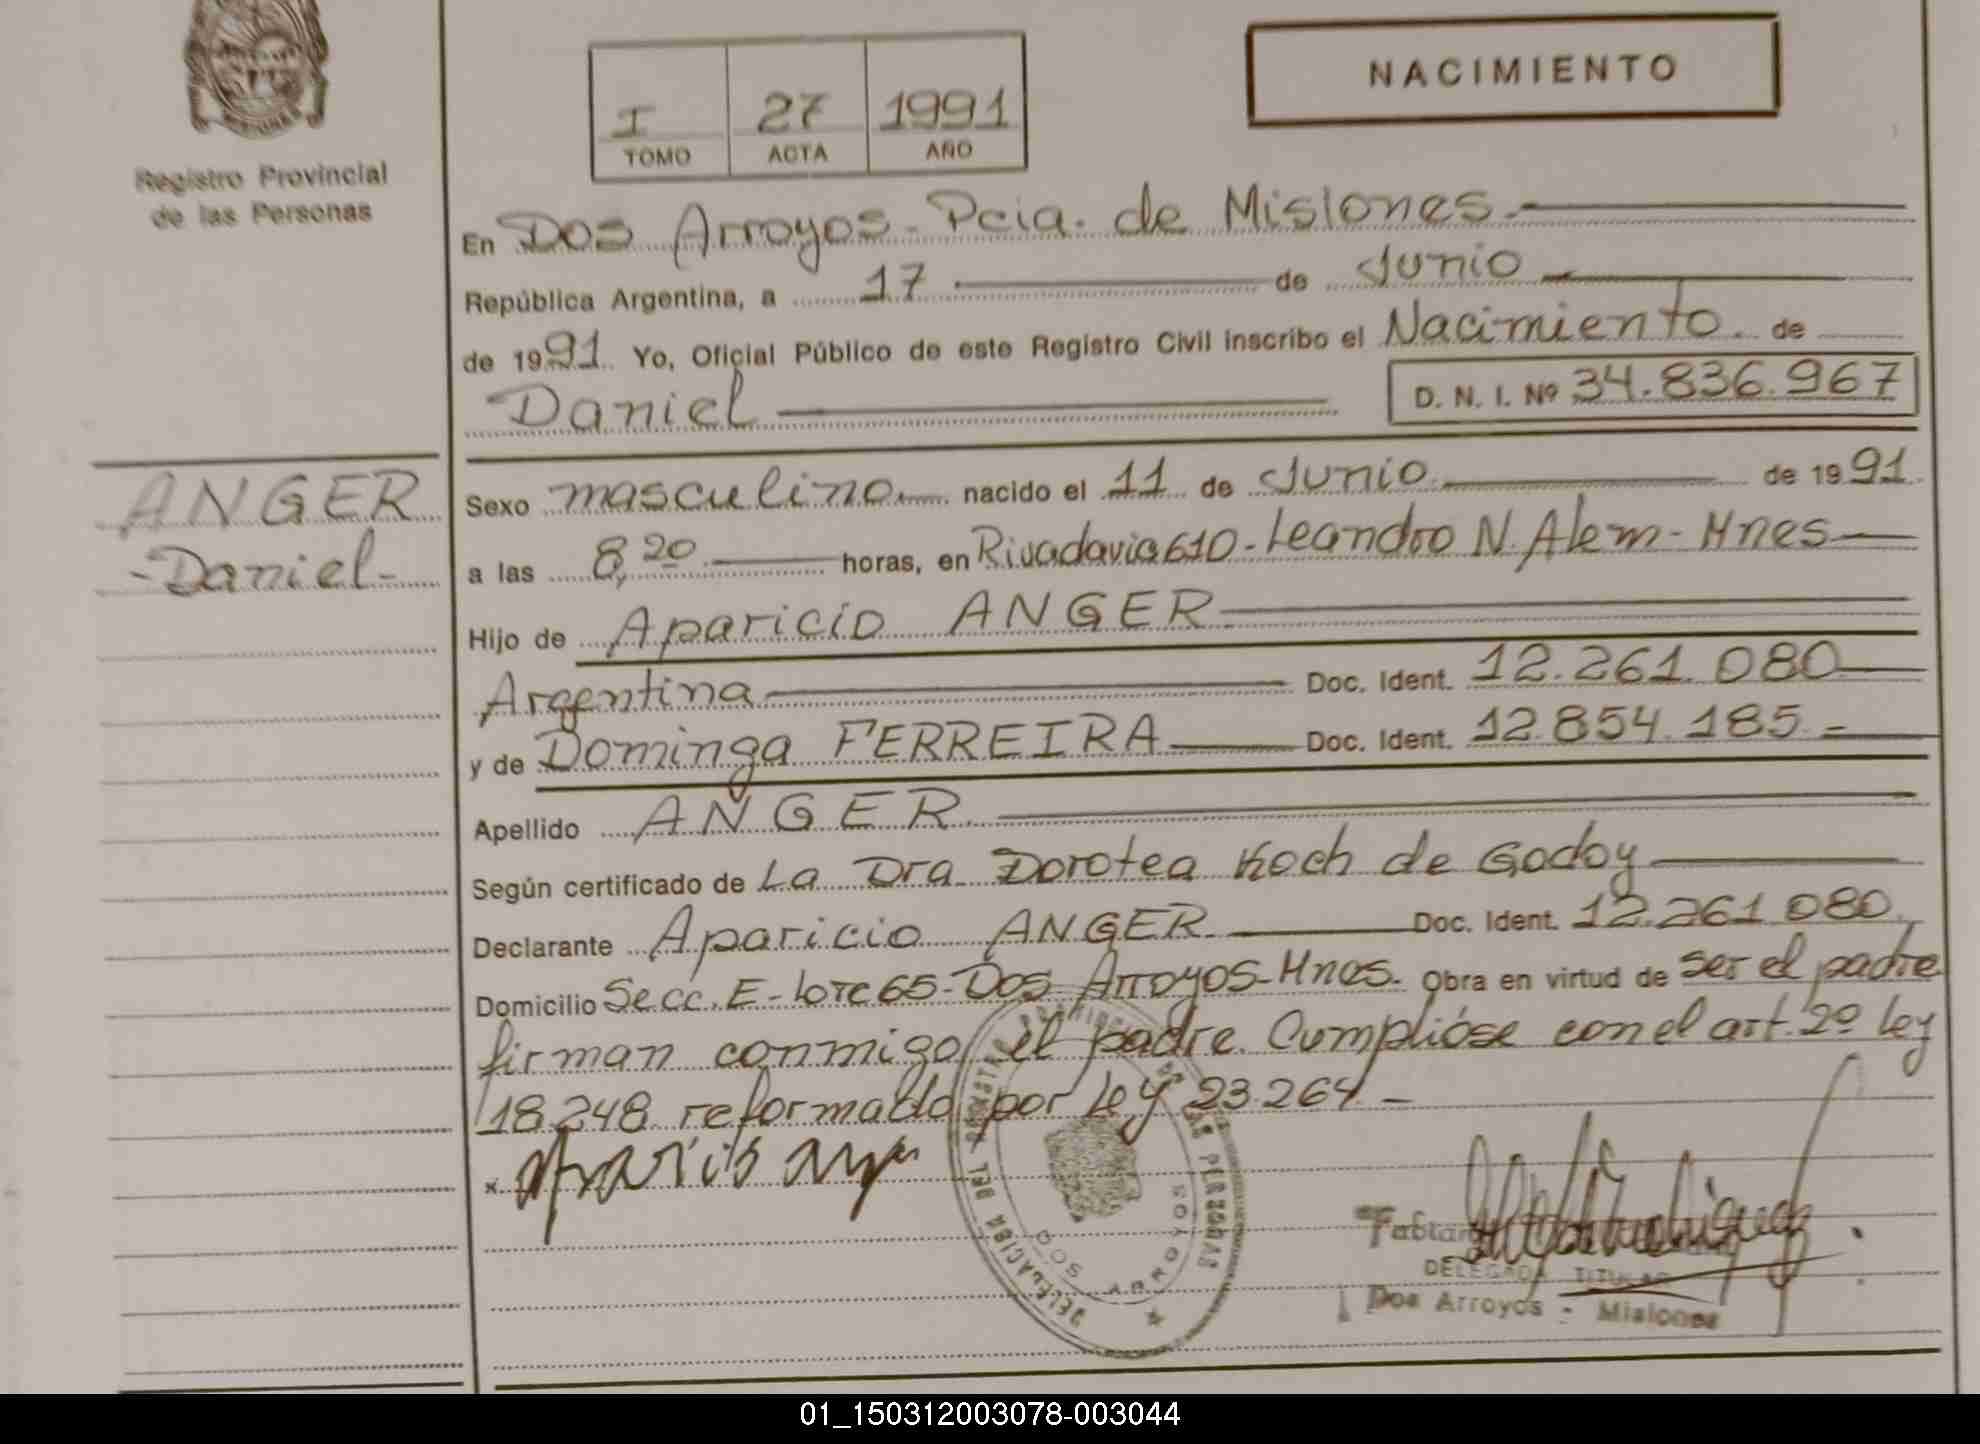 Registro Provincial
de las Personas
I 27 1991
TOMO ACTA AÑO
NACIMIENTO
En Dos Arroyos - Pcia. de Misiones
República Argentina, a 17 de Junio
de 1991. Yo, Oficial Público de este Registro Civil inscribo el Nacimiento. de
Daniel D. N. I. Nº 34.836.967
ANGER
-Daniel-
Sexo masculino nacido el 11 de Junio de 1991
a las 8,20 horas, en Rivadavia 610 - Leandro N. Alem - Mnes
Hijo de Aparicio ANGER
Argentina Doc. Ident. 12.261.080
y de Dominga FERREIRA Doc. Ident. 12.854.185.-
Apellido ANGER
Según certificado de La Dra Dorotea Koch de Godoy
Declarante Aparicio ANGER Doc. Ident. 12.261.080
Domicilio Secc. E - lote 65 - Dos Arroyos - Mnes. Obra en virtud de ser el padre
firman conmigo el padre. Cumplióse con el art. 2º ley
18.248 reformado por Ley 23.264.-
DELEGACION DEL REGISTRO PROVINCIAL DE LAS PERSONAS
DOS ARROYOS
DELEGADA TITULAR
Dos Arroyos - Misiones
01_150312003078-003044